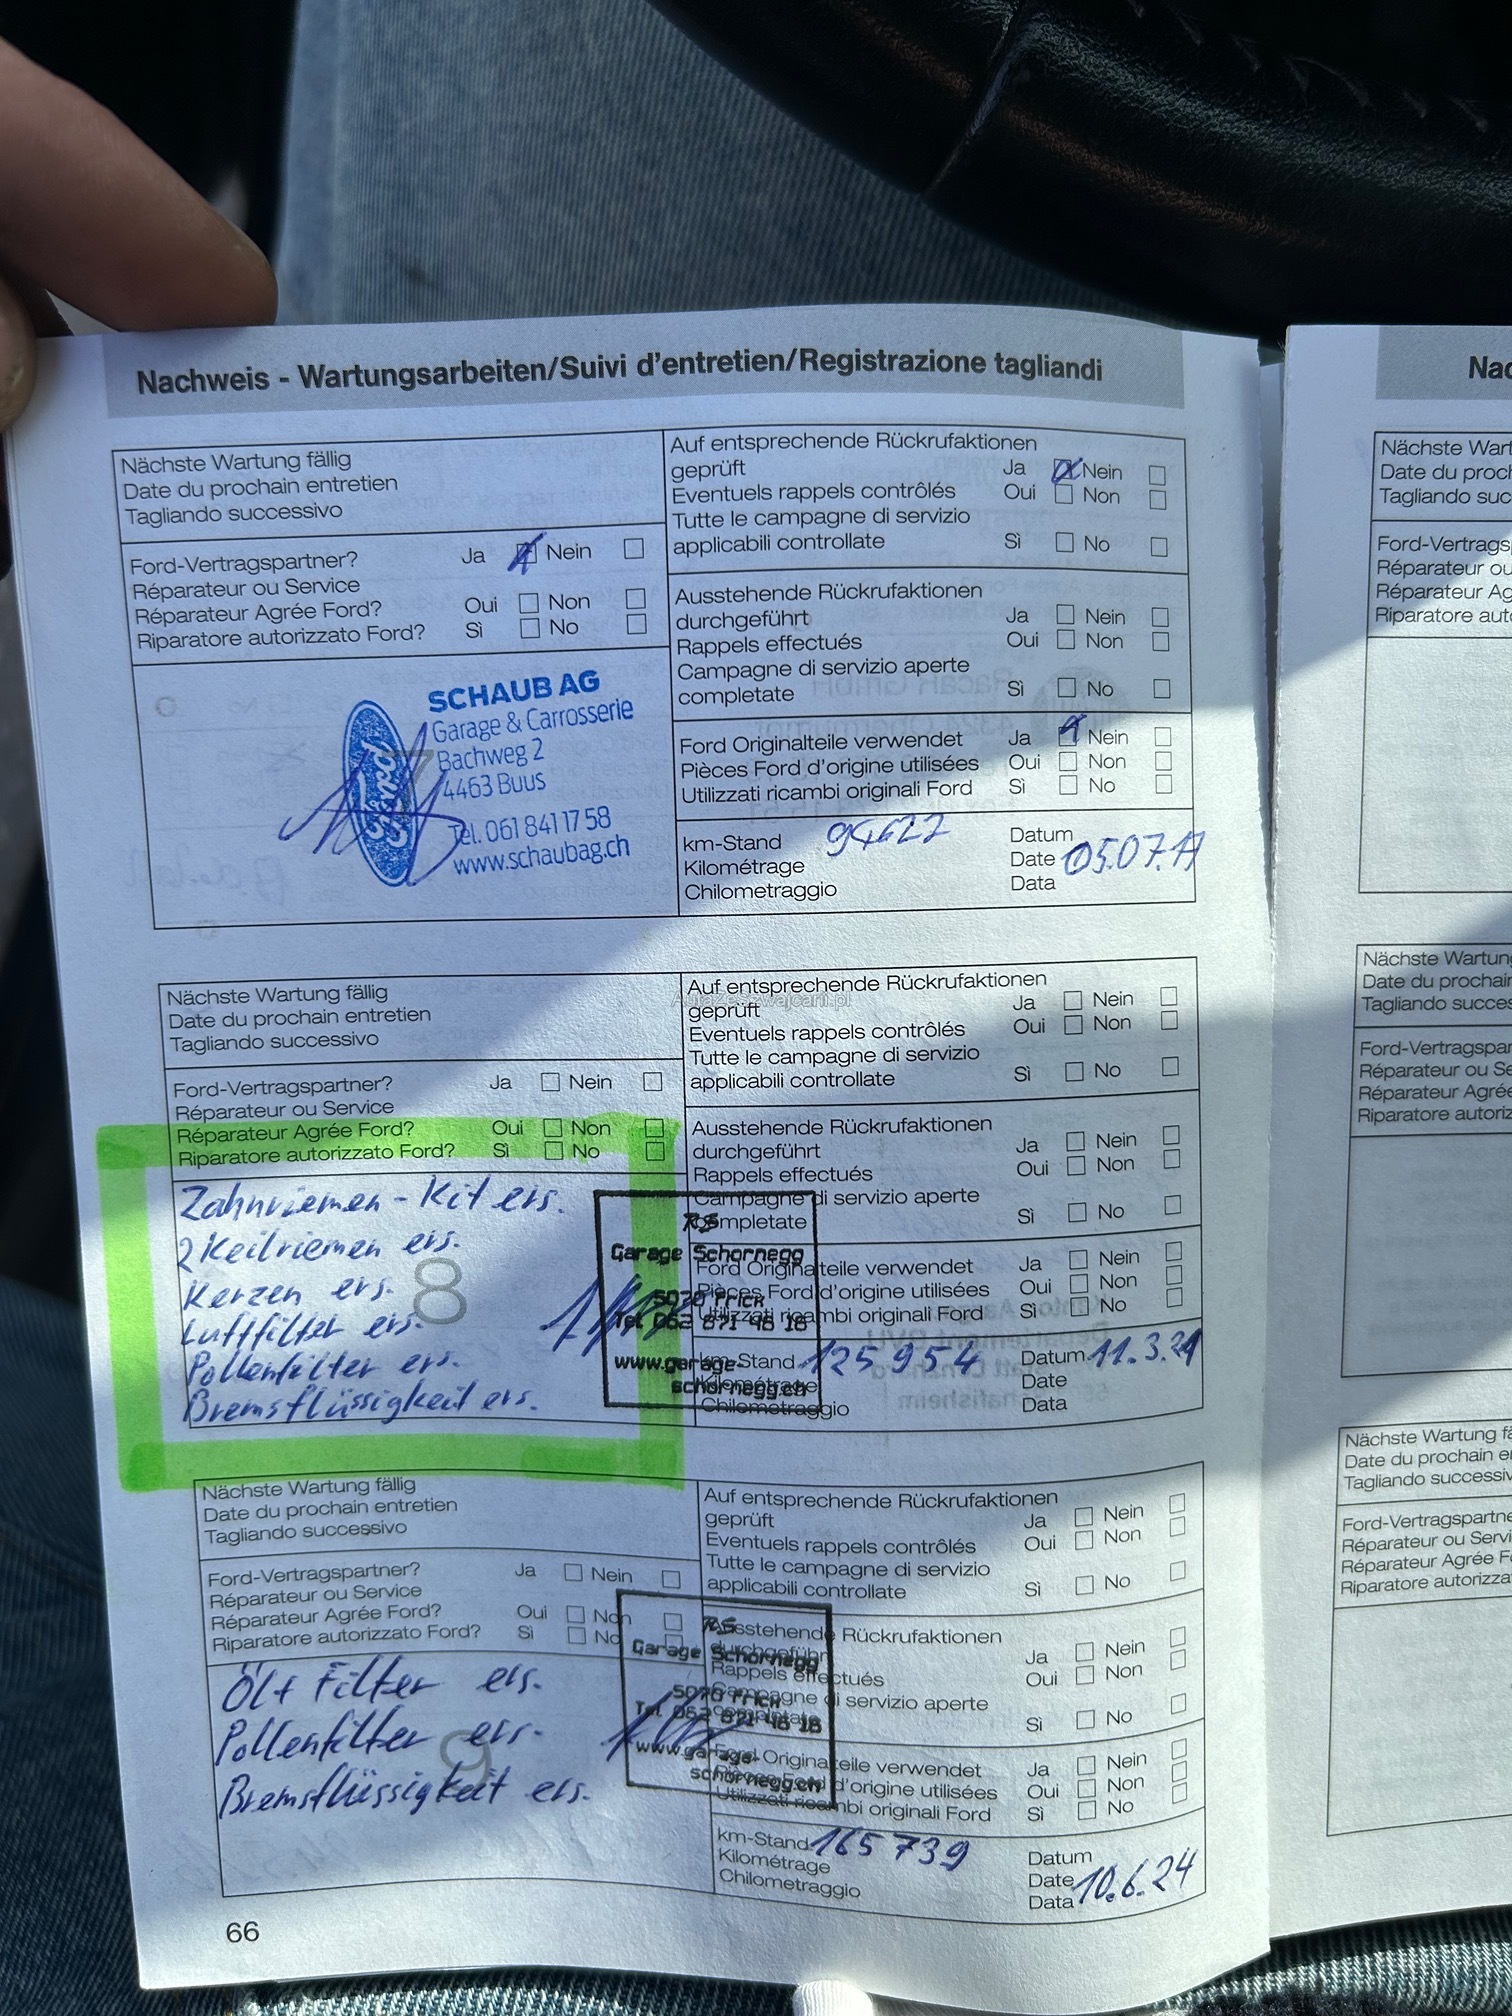 Nachweis - Wartungsarbeiten/Suivi d'entretien/Registrazione tagliandi
Nächste Wartung fällig
Date du prochain entretien
Tagliando successivo
Ford-Vertragspartner? Ja Nein
Réparateur ou Service
Réparateur Agrée Ford? Oui Non
Riparatore autorizzato Ford? Sì No
7
Ford
SCHAUB AG
Garage & Carrosserie
Bachweg 2
4463 Buus
Tel. 061 841 17 58
www.schaubag.ch
Auf entsprechende Rückrufaktionen
geprüft Ja Nein
Eventuels rappels contrôlés Oui Non
Tutte le campagne di servizio
applicabili controllate Sì No
Ausstehende Rückrufaktionen
durchgeführt Ja Nein
Rappels effectués Oui Non
Campagne di servizio aperte
completate Sì No
Ford Originalteile verwendet Ja Nein
Pièces Ford d'origine utilisées Oui Non
Utilizzati ricambi originali Ford Sì No
km-Stand 94622 Datum
Kilométrage Date 05.07.17
Chilometraggio Data
Nächste Wartung fällig
Date du prochain entretien
Tagliando successivo
Ford-Vertragspartner? Ja Nein
Réparateur ou Service
Réparateur Agrée Ford? Oui Non
Riparatore autorizzato Ford? Sì No
8
Zahnriemen-Kit ers.
2 Keilriemen ers.
Kerzen ers.
Luftfilter ers.
Pollenfilter ers.
Bremsflüssigkeit ers.
RS
Garage Schornegg
5070 Frick
Tel. 062 871 48 18
www.garage-
schornegg.ch
Auf entsprechende Rückrufaktionen
AutazeSzwajcarii.pl
geprüft Ja Nein
Eventuels rappels contrôlés Oui Non
Tutte le campagne di servizio
applicabili controllate Sì No
Ausstehende Rückrufaktionen
durchgeführt Ja Nein
Rappels effectués Oui Non
Campagne di servizio aperte
completate Sì No
Ford Originalteile verwendet Ja Nein
Pièces Ford d'origine utilisées Oui Non
Utilizzati ricambi originali Ford Sì No
km-Stand 125954 Datum 11.3.21
Kilométrage Date
Chilometraggio Data
Nächste Wartung fällig
Date du prochain entretien
Tagliando successivo
Ford-Vertragspartner? Ja Nein
Réparateur ou Service
Réparateur Agrée Ford? Oui Non
Riparatore autorizzato Ford? Sì No
9
Öl+Filter ers.
Pollenfilter ers.
Bremsflüssigkeit ers.
RS
Garage Schornegg
5070 Frick
Tel. 062 871 48 18
www.garage-
schornegg.ch
Auf entsprechende Rückrufaktionen
geprüft Ja Nein
Eventuels rappels contrôlés Oui Non
Tutte le campagne di servizio
applicabili controllate Sì No
Ausstehende Rückrufaktionen
durchgeführt Ja Nein
Rappels effectués Oui Non
Campagne di servizio aperte
completate Sì No
Ford Originalteile verwendet Ja Nein
Pièces Ford d'origine utilisées Oui Non
Utilizzati ricambi originali Ford Sì No
km-Stand 165739 Datum
Kilométrage Date 10.6.24
Chilometraggio Data
66
Nac
Nächste Wart
Date du proch
Tagliando suc
Ford-Vertrags
Réparateur ou
Réparateur Ag
Riparatore aut
Nächste Wartung
Date du prochain
Tagliando succes
Ford-Vertragspar
Réparateur ou Se
Réparateur Agrée
Riparatore autoriz
Nächste Wartung fä
Date du prochain e
Tagliando successiv
Ford-Vertragspartne
Réparateur ou Servi
Réparateur Agrée F
Riparatore autorizza